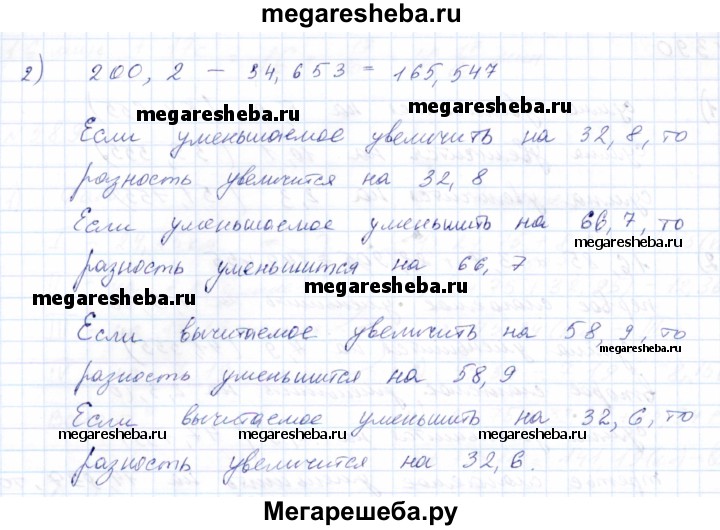 megaresheba.ru
2) 200,2 - 34,653 = 165,547
megaresheba.ru megaresheba.ru
Если уменьшаемое увеличить на 32,8, то
разность увеличится на 32,8
Если уменьшаемое уменьшить на 66,7, то
megaresheba.ru
разность уменьшится на 66,7
megaresheba.ru megaresheba.ru
Если вычитаемое увеличить на 58,9, то
megaresheba.ru
разность уменьшится на 58,9
Если вычитаемое уменьшить на 32,6, то
megaresheba.ru megaresheba.ru megaresheba.ru
разность увеличится на 32,6.
Мегарешеба.ру